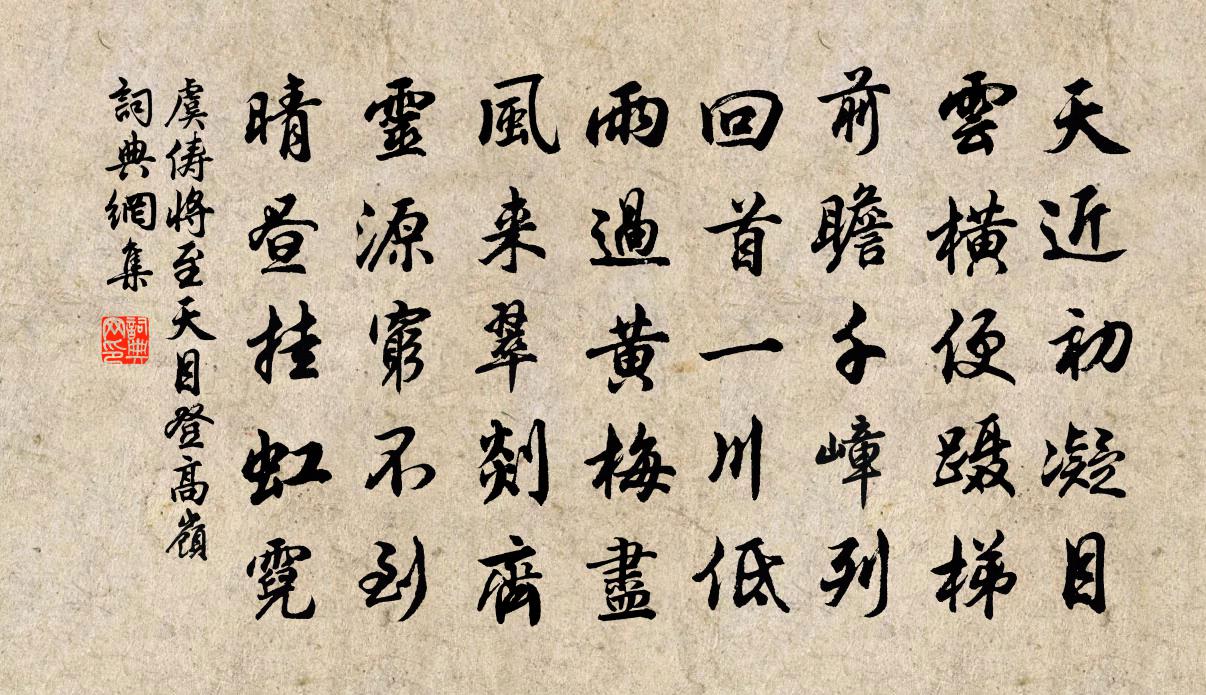 天近初凝目
雲橫便蹑梯
前瞻千嶂列
回首一川低
雨過黄梅盡
風来翠剡齊
靈源窮不到
晴昼挂虹霓
虞儔將至天目登高嶺
詞典網集
詞典网印